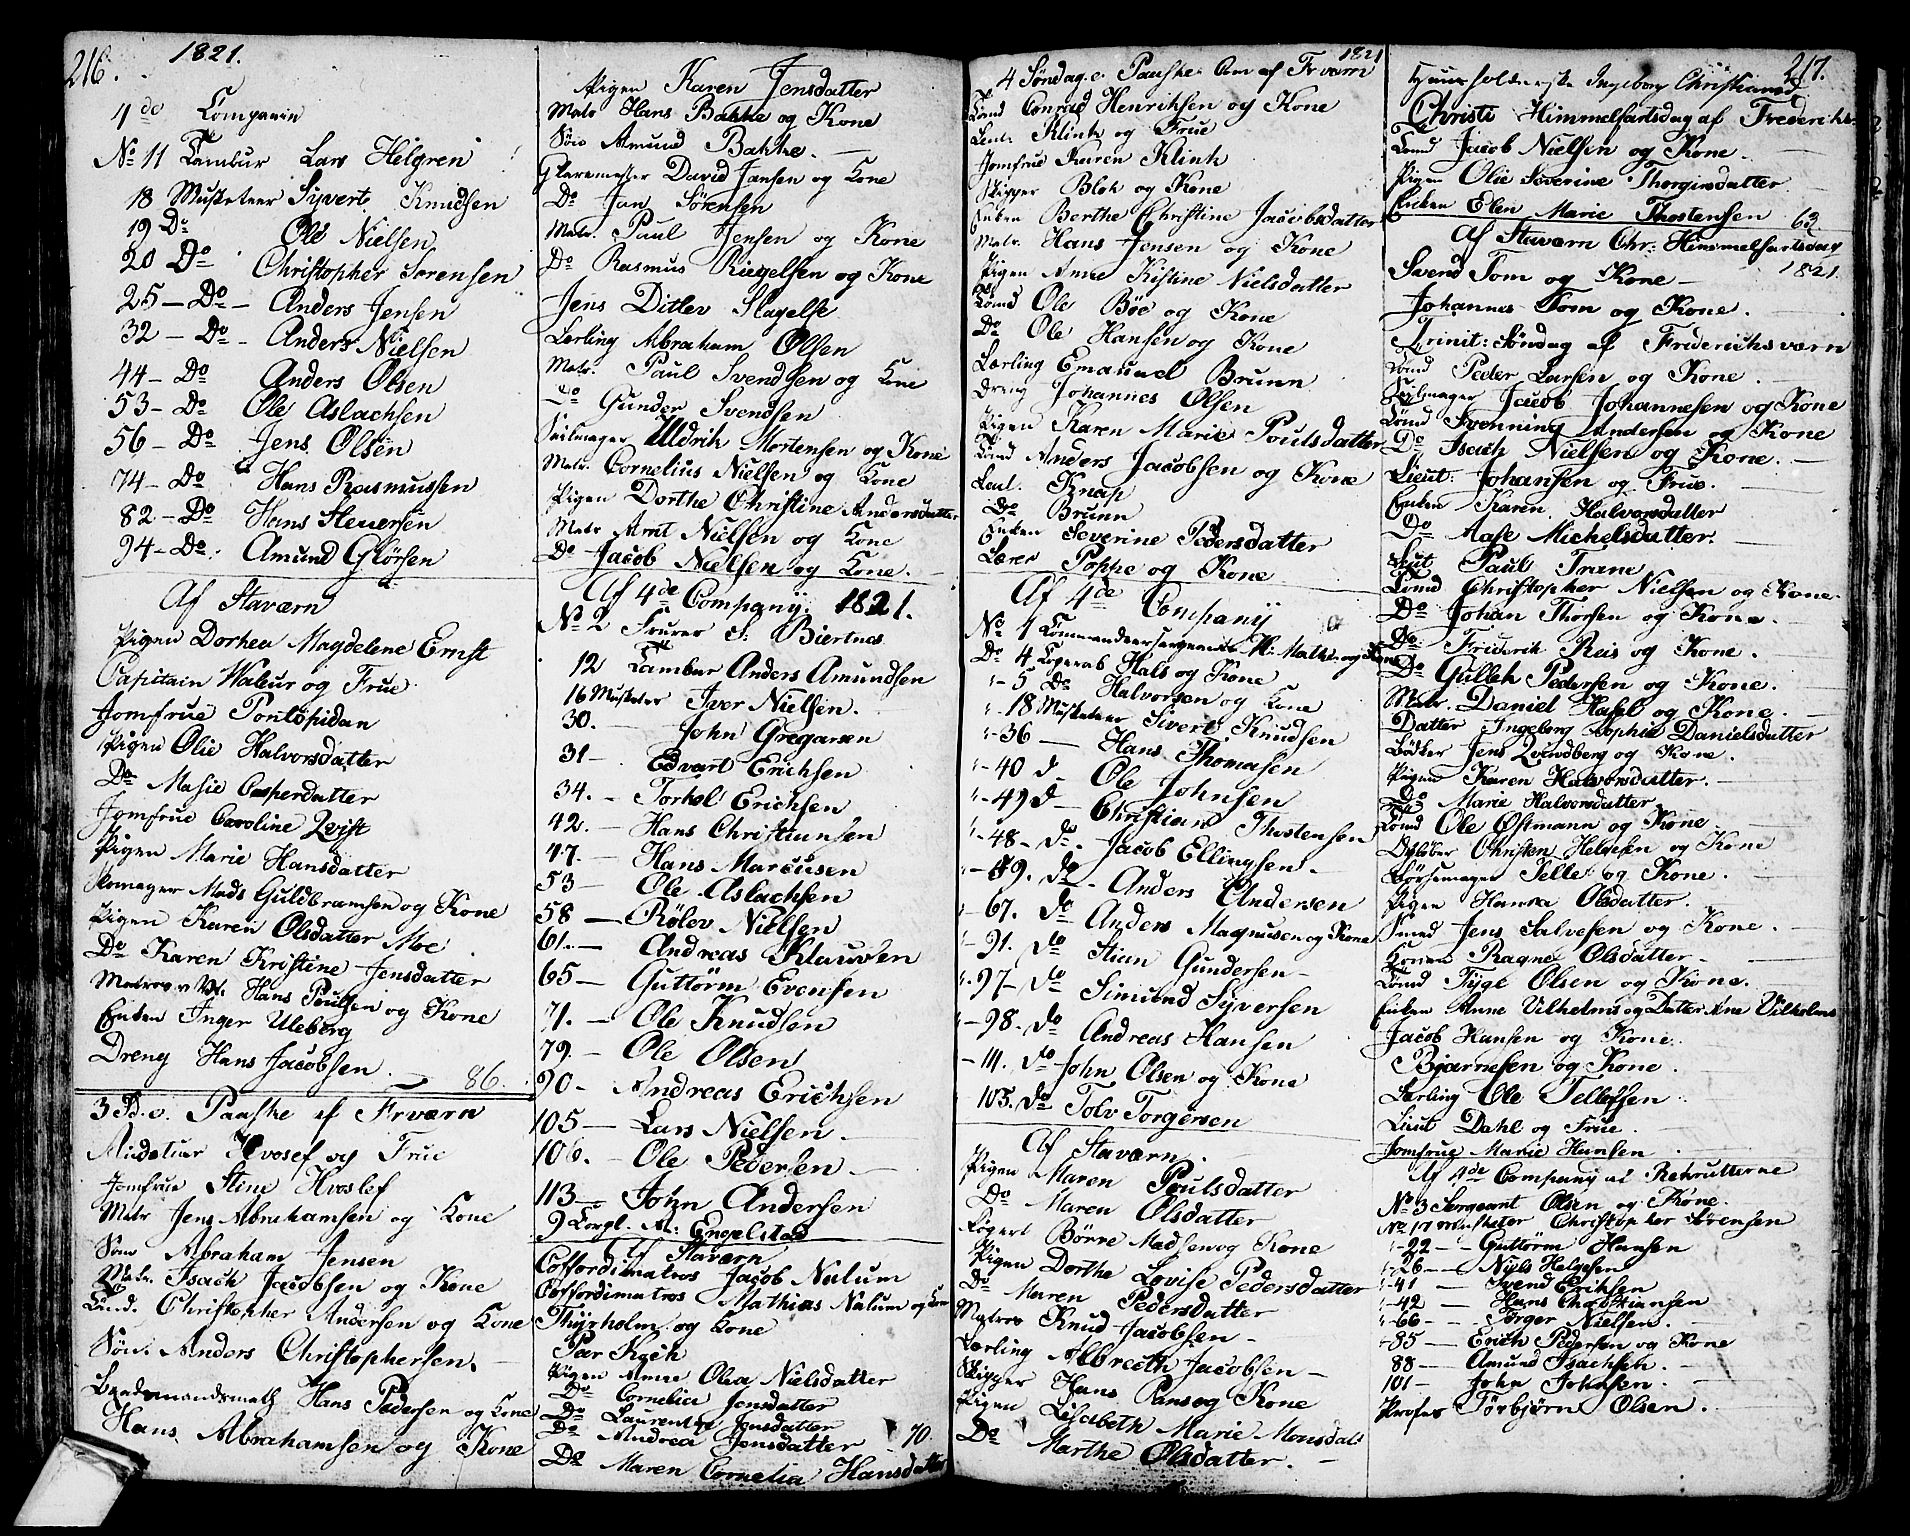 216. 1821.
4de Companie
No 11 Tambur Lars Helgren
18 Musketeer Syvert Knudsen
19 Do Ole Nielsen
20 Do Christopher Sörensen
25 - Do - Anders Jensen
32 - Do - Anders Nielsen
44 - Do Anders Olsen
53 - Do Ole Aslachsen
56 - Do Jens Olsen
74 - Do Hans Rasmussen
82 - Do Hans
94 - Do: Amund Glörsen
Af Staværn
Pigen Dorhea Magdelene Ernst
Capitain Waleur og Frue
Jomfrue Pontopidan
Pigen Olie Halvorsdatter
Do Masie Casperdatter
Jomfrue Caroline Qvist
Pigen Marie Hansdatter
Skomager Mads Guldbramsen og Kone
Pigen Karen Olsdatter Moe
Do Karen Kristine Jensdatter
Matros Hans Poulsen og Kone
Enken Inger Uleberg
Dreng Hans Jacobsen. - 86.
3 S. e. Paaske af Frværn
Auditeur Hvosef og Frue
Jomfrue Stine Hvoslef
Matr Jens Abrahamsen og Kone
Sön Abraham Jensen
Matr. Isach Jacobsen og Kone
Tömd. Christopher Andersen og Kone
Sön. Anders Christophersen.
Baadsmandsmath Hans Pedersen og Kone
Hans Abrahamsen og Kone
Pigen Karen Jensdatter
Matr Hans Bakke og Kone
Sön Amund Bakke. -
Glaremester David Jansen og Kone
Do Jan Sörensen
Matr. Paul Jensen og Kone
Do Rasmus Riegelsen og Kone
Jens Ditlev Slagelse
Lerling Abraham Olsen
Matr. Paul Svendsen og Kone
Do Gunder Svendsen
Seilmager Uldrik Mortensen og Kone
Matr. Cornelius Nielsen og Kone
Pigen Dorthe Christine Andersdatter
Matr Arnt Nielsen og Kone
Do Jacob Nielsen og Kone. -
Af 4de Company. 1821.
No 2 Fourer S: Biertnes
12 Tambur Anders Amundsen
16 Musketeer Iver Nielsen.
30. - John Gregarsen
31 - Edvart Erichsen
34. - Torkel Erichsen
42. - Hans Christiansen
47. - Hans Marcusen
53 - Ole Aslachsen
58 - Rölev Nielsen
61. - Andreas Klausen
65 - Guttorm Evensen
71. - Ole Knudsen
79. - Ole Olsen
90 - Andreas Erichsen
105 - Lars Nielsen.
106. - Ole Pedersen
113 - John Andersen
9 Corpl. A: Engelstad
Af Staværn
Coffordimatros Jacob Nalum
Coffordimatros Mathias Nalum og Kone
Thyrholm og Kone
Par Koch
Pigen Anne Olea Nielsdatter
Do Cornelia Jensdatter
Do Laurentze Jensdatter
Do Andrea Jensdatter - 70.
Do Maren Cornelia Hansdatter
1821
4 Söndag. e. Paaske af Frværn
Tömd Conrad Henriksen og Kone
Leut. Klink og Frue
Jomfrue Karen Klink
Skipper Blok og Kone
Enken Berthe Christine Jacobsdatter
Matr. Hans Jensen og Kone
Pigen Anne Kistine Nielsdatter
Tömd Ole Böe og Kone
Do Ole Hansen og Kone
Lærling Emanuel Brunn
Dreng Johannes Olsen
Pigen Karen Marie Poulsdatter
Tömd Anders Jacobsen og Kone
Leut. Knap
Do Brunn
Enken Severine Pedersdatter
Lærer Poppe og Kone
Af 4de Company
No 1 Kommandeersergeant H: Mathe og Kone
Do 4 Koporab Hals og Kone
" - 5 Do Halvorsen og Kone
" - 18 Musketeer Sivert Knudsen
" - 36 - Hans Thomasen
" - 40 d Ole Johnsen
" - 49 d - Christian Thostensen
" - 48 - Do. Jacob Ellingsen
" - 49. do Anders Andersen
" - 67. do Anders Magnusen og Kone
" - 91. do Stian Gundersen -
" - 97 - do Simund Syversen
" - 98. do Andreas Hansen
- 111. do John Olsen og Kone
- 103. do Tolv Torgersen
Af Staværn.
Pigen Maren Poulsdatter
Do Maren Olsdatter
Logert Börre Madsen og Kone
Pigen Dorthe Lovise Pedersdatter
Do Maren Pedersdatter
Matros Knud Jacobsen -
Lærling Albrecth Jacobsen -
Skipper Hans Pans og Kone
Pigen Lisabeth Marie Monsdat
Do Marthe Olsdatter. -
217.
Huusholderske Ingeborg Christiansd
Christi Himmelfartsdag af Frederiks
Tömd Jacob Nielsen og Kone -
Pigen Olie Severine Thorgersdatter
Enken Elen Marie Thostensen 63
Af Staværn Chr: Himmelfartsdag
1821.
Svend Tom og Kone -
Johannes Tom og Kone.
Trinit: Söndag af Friderichsværn
Tömd Peder Larsen og Kone.
Seilmager Jacob Johannesen og Kone
Tömd Svenning Andersen og Kone
Do Isach Nielsen og Kone. -
Lieut: Johansen og Frue.
Enken Karen Halvorsdatter
Do Aase Michelsdatter.
Paul Trane
Tömd Christopher Nielsen og Kone.
Do Johan Thorsen og Kone.
Do Friderik Reis og Kone.
Do Gullek Pedersen og Kone.
Matr. Daniel Hasel og Kone
Datter Ingeborg Sophie Danielsdatter
Bödker Jens Lundberg og Kone.
Pigen Karen Halvorsdatter. -
Do Marie Halvorsdatter
Tömd Ole Östmann og Kone
Christen Helgesen og Kone
Börsemager Pelle og Kone.
Pigen Hanna Olsdatter.
Smed Jens Salvesen og Kone.
Konen Ragne Olsdatter -
Tömd Tyge Olsen og Kone.
Enken Anne Vilhelms og Datter Ane Vilholms
Jacob Hansen og Kone.
Bjarnesen og Kone.
Lærling Ole Tellefsen
Lieut Dahl og Frue.
Jomfrue Marie Hansen
Af 4de Company af Rekrutterne
No 3 Sergeant Olsen og Kone.
No 17 Musketer Christopher Sörensen
" 22 - - Guttorm Hansen
" - 26 - - Niels Helgesen
" - 41 - Svend Eriksen
" - 42 - Hans Christiansen
" - 66 - - Törger Nielsen. -
" - 85 - Erich Pedersen og Kone
88 - Amund Isachsen. -
101 - John Johnsen. -
Profos Törbjörn Olsen. -